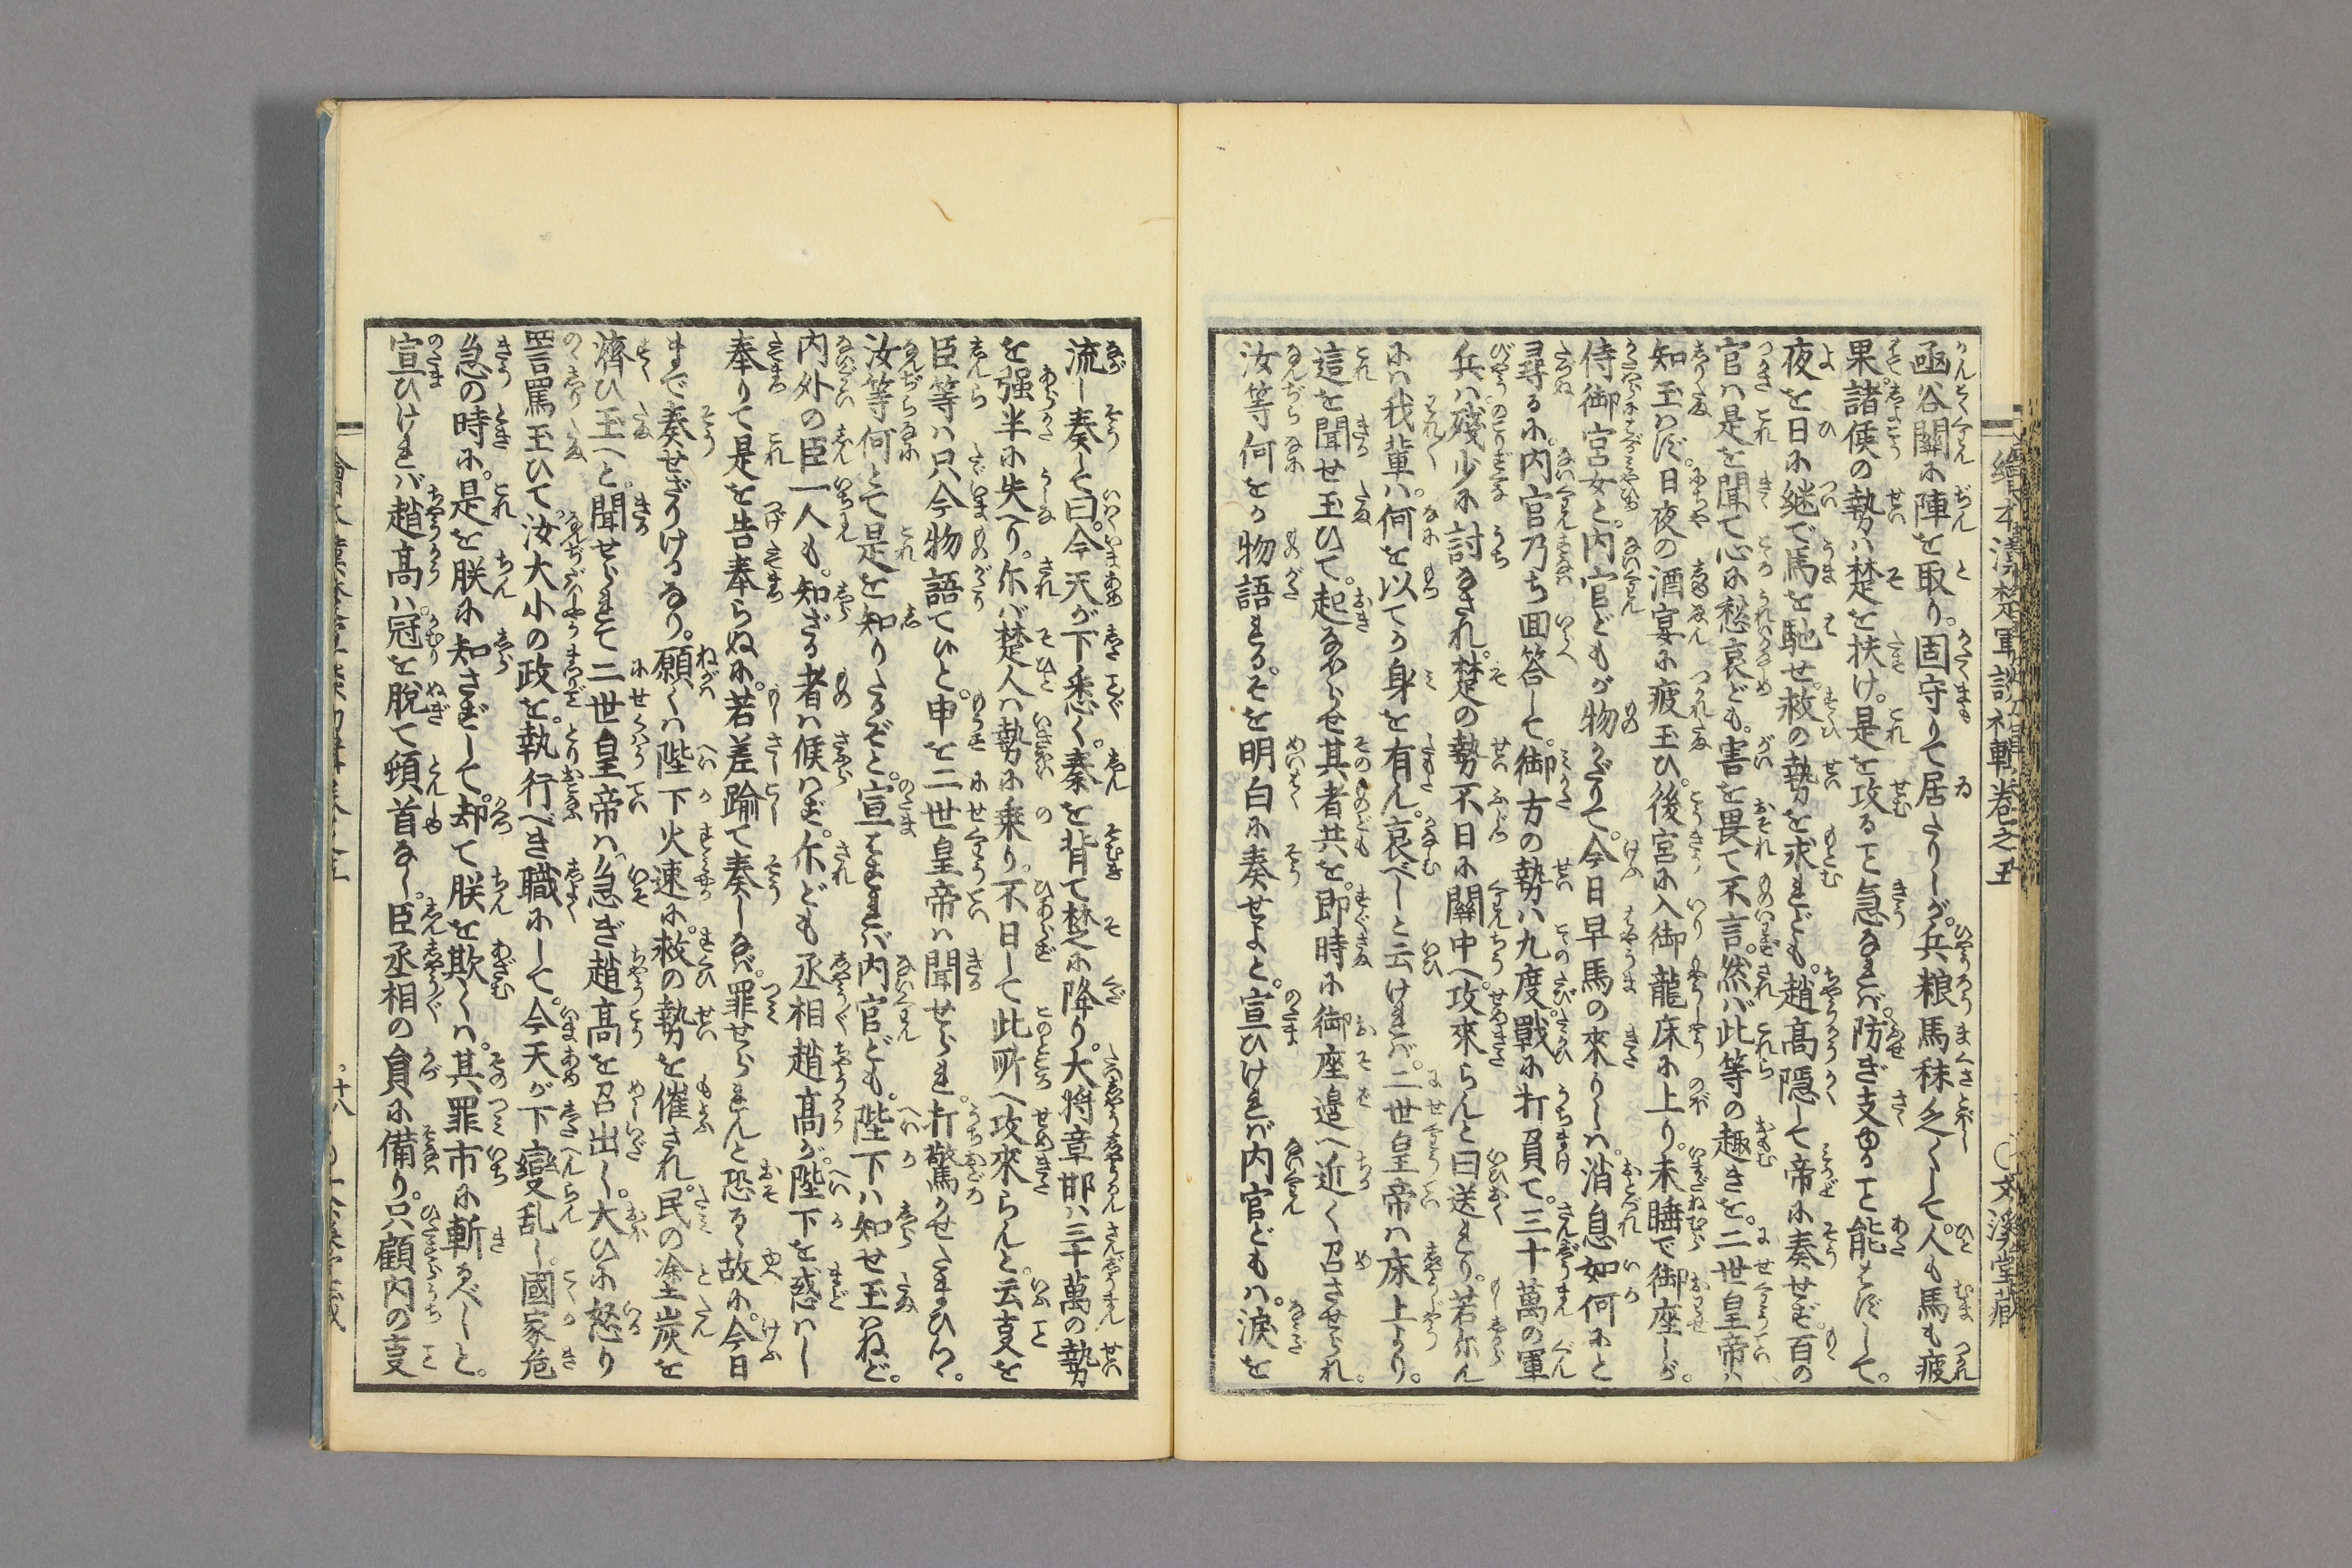 函谷關に陣を取り。固守りて居たりしが。兵粮馬秣乏くして。人も馬も疲
果。諸候の勢ハ楚を扶け。是を攻ること急なれバ。防ぎ支ゆること能はずして。
夜を日に継で馬を馳せ。救の勢を求れども。趙高隠して帝に奏せず。百の
官ハ是を聞て心に愁哀ども。害を畏て不言。然バ此等の趣きを。二世皇帝ハ
知玉はず。日夜の酒宴に疲玉ひ。後宮に入御龍床に上り。未睡で御座しが。
侍御宮女と。内官どもが物がたりて。今日早馬の來りしハ。消息如何にと
尋るに。内官乃ち回答して。御方の勢ハ九度戰に打負て。三十萬の軍
兵ハ。殘少に討なされ。楚の勢不日に關中へ。攻來らんと曰送れり。若尓ん
にハ我輩ハ。何を以てか身を有ん。哀べしと云けれバ。二世皇帝ハ床上より。
這を聞せ玉ひて。起なほらせ其者共を。即時に御座邉へ近く召させられ。
汝等何をか物語れる。そを明白に奏せよと。宣ひけれバ内官どもハ。涙を
繪本漢楚軍談初輯卷之五
文溪堂藏
流し奏して曰。今天が下悉く。秦を背て楚に降り。大將章邯ハ三十萬の勢
を強半に失へり。尓バ楚人ハ勢に乗り。不日して此所へ攻來らんと。云支を
臣等ハ只今物語て候と。申を二世皇帝ハ聞せられ。打驚かせたまひつ。
汝等何とて是を知りたるぞと。宣はまれバ内官ども。陛下ハ知せ玉はねど。
内外の臣一人も。知ざる者ハ候はず。尓ども丞相趙高が。陛下を惑はし
奉りて是を告奉らぬに。若差踰て奏しなバ。罪せられんと恐るゝ故に。今日
まで奏せざりけるなり。願くハ陛下火速に。救の勢を催され。民の塗炭を
濟ひ玉へと。聞せられて二世皇帝ハ。急ぎ趙高を召出し。大ひに怒り
詈罵玉ひて。汝大小の政を。執行べき職にして。今天が下變乱し。國家危
急の時に。是を朕に知さずして。却て朕を欺くハ。其罪市に斬るべしと。
宣ひけれバ趙高ハ。冠を脱て頓首なし。臣丞相の負に備り。只顧内の支
十八